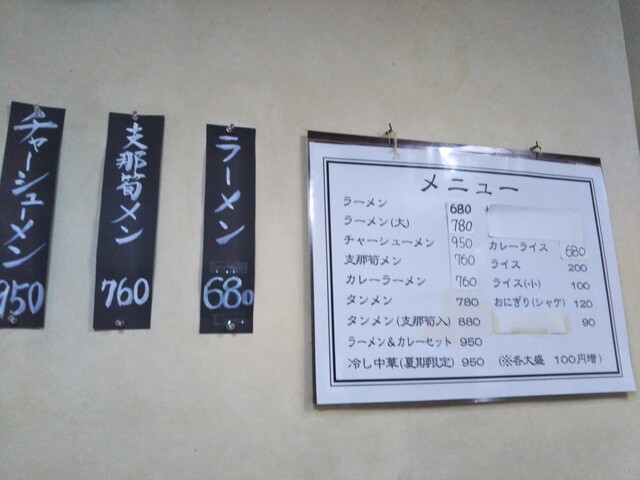 チャーシューメン
950
支那筍メン
760
ラーメン
680
メニュー
ラーメン 680
ラーメン(大) 780
チャーシューメン 950
支那筍メン 760
カレーラーメン 760
タンメン 780
タンメン(支那筍入) 880
ラーメン&カレーセット 950
冷し中華(夏期限定) 950
カレーライス 680
ライス 200
ライス(小) 100
おにぎり(シャケ) 120
90
(※各大盛 100円増)